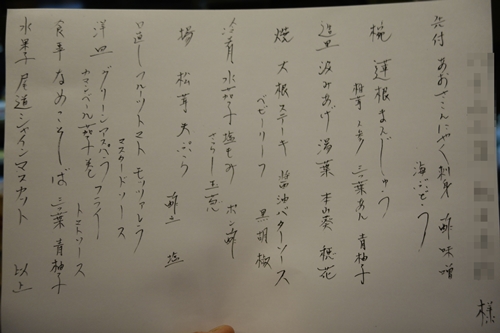 様
先付 あおさこんにゃく刺身 酢味噌
海ぶどう
椀 蓮根まんじゅう
三葉あん 青柚子
造里 汲みあげ湯葉 本山葵 穂花
焼 大根ステーキ 醤油バターソース
ベビーリーフ 黒胡椒
冷肴 水茄子塩もみ ポン酢
さらし玉葱
揚 松茸天ぷら 酢立 塩
口直し フルーツトマト モッツァレラ
マスタードソース
洋皿 グリーンアスパラフライ
カマンベール茄子巻 トマトソース
食事 なめこそば 三葉 青柚子
水菓子 尾道シャインマスカット 以上